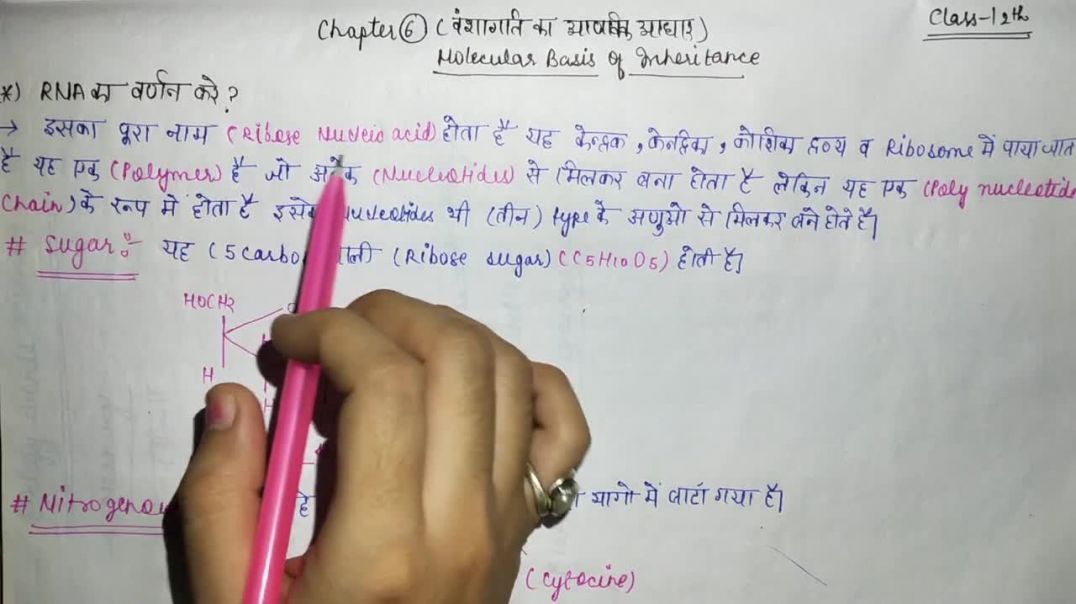 Class-12th
Chapter ⑥ (वंशागति का आणविक आधार)
Molecular Basis of Inheritance
*) RNA का वर्णन करे ?
→ इसका पूरा नाम (Ribose Nucleic acid) होता है यह केन्द्रक, केन्द्रिका, कोशिका द्रव्य व Ribosome में पाया जात
है यह एक (Polymer) है जो अनेक (Nucleotides) से मिलकर बना होता है लेकिन यह एक (Poly nucleotide
Chain) के रूप में होता है इसके Nucleotides भी (तीन) type के अणुओ से मिलकर बने होते है|
# Sugar:- यह (5 Carbo ली (Ribose sugar) (C5H10O5) होती है|
HOCH2
H
# Nitrogenou है भागो में बाटॉं गया है|
(Cytocine)